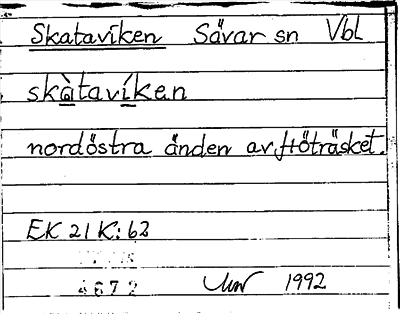 Skataviken Sävar sn Vbl
skàtavíken
nordöstra änden av Flöträsket.
EK 21 K: 62
4672 1992